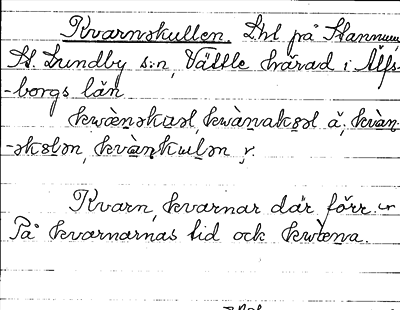 Kvarnskullen. Lht på Stannum,
St. Lundby s:n, Vättle härad i Älfs-
-borgs län
kwæ̀nəkuəl, kwànakꞷəl ä, kvàn-
-əkꞷlən, kvànkuLən y.
Kvarn, kvarnar där förr.
På kvarnarnas tid ock kwæ̀na.